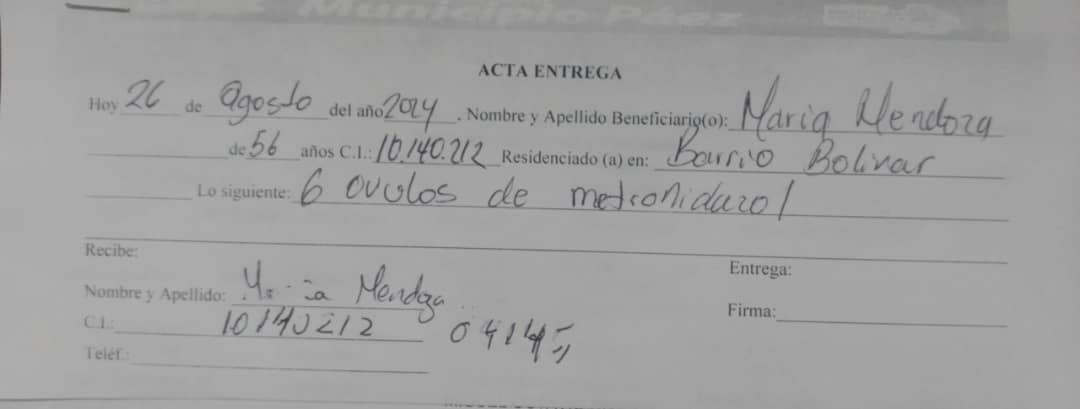 Municipio Páez
ACTA ENTREGA
Hoy 26 de Agosto del año 2024. Nombre y Apellido Beneficiario(o): Maria Mendoza
de 56 años C.I.: 10.140.212 Residenciado (a) en: Barrio Bolivar
Lo siguiente: 6 ovulos de metronidazol
Recibe:
Entrega:
Nombre y Apellido: Maria Mendoza
Firma:
C.I.: 10140212 04145
Teléf.: